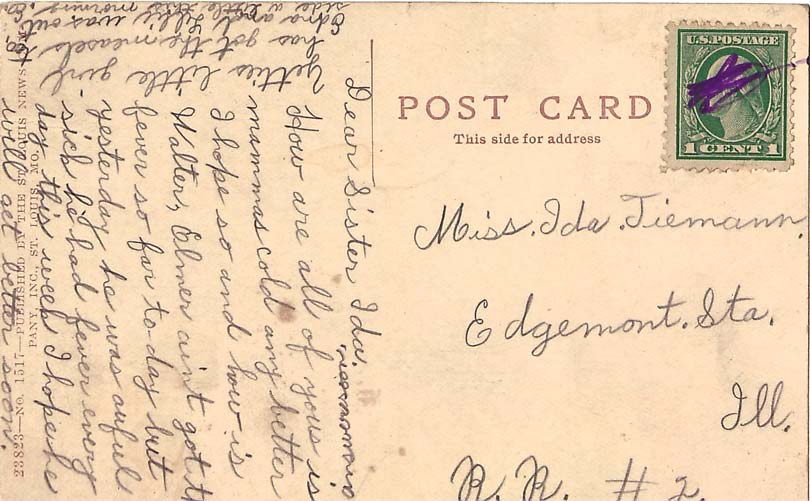 POST CARD
This side for address
U.S. POSTAGE
1 CENT 1
Miss. Ida Tiemann.
Edgemont. Sta.
Ill.
R. R. # 2.
Dear Sister Ida.
How are all of yous is
mammas cold any better
I hope so and how is
Walter, Elmer ain't got
fever so far to-day but
yesterday he was awful
sick he had fever every
day this week I hope he
will get better soon.
little girl
has got the measels
Edna and was out
side a little this morning.
23823—No. 1517—PUBLISHED BY THE ST. LOUIS NEWS
PANY, INC., ST. LOUIS, MO.